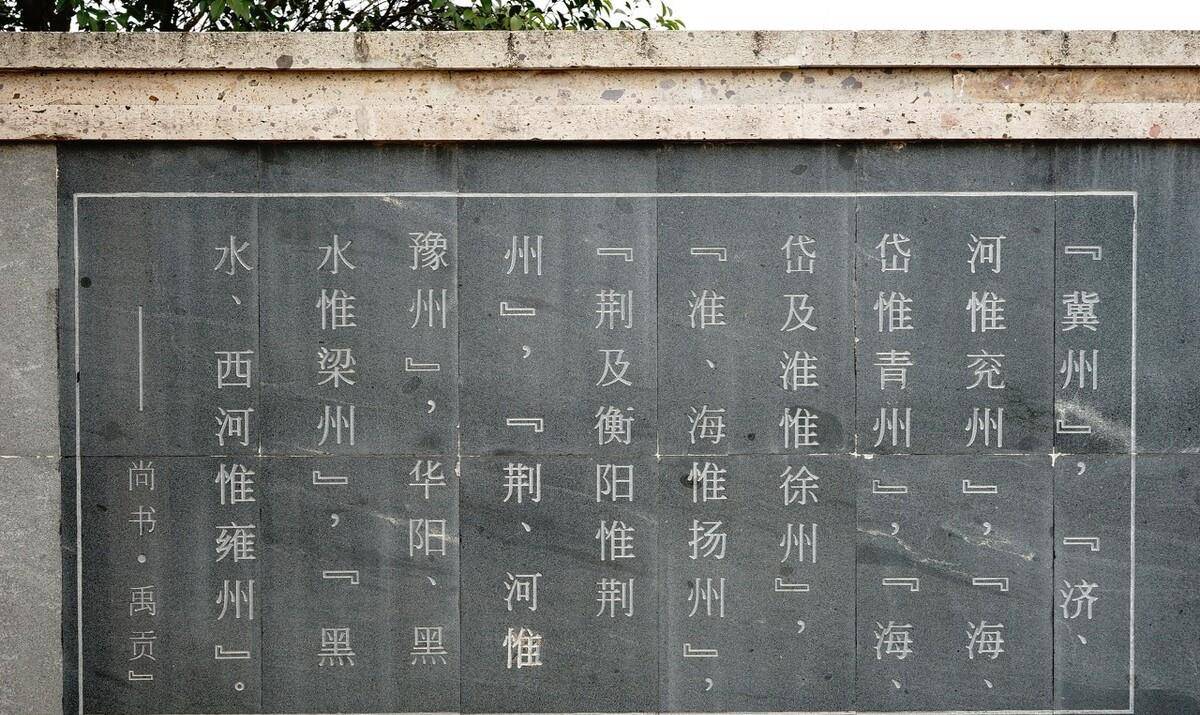 『冀州』，『济、
河惟兖州』，『海、
岱惟青州』，『海、
岱及淮惟徐州』，
『淮、海惟扬州』，
『荆及衡阳惟荆
州』，『荆、河惟
豫州』，华阳、黑
水惟梁州』，『黑
水、西河惟雍州』。
——尚书·禹贡』